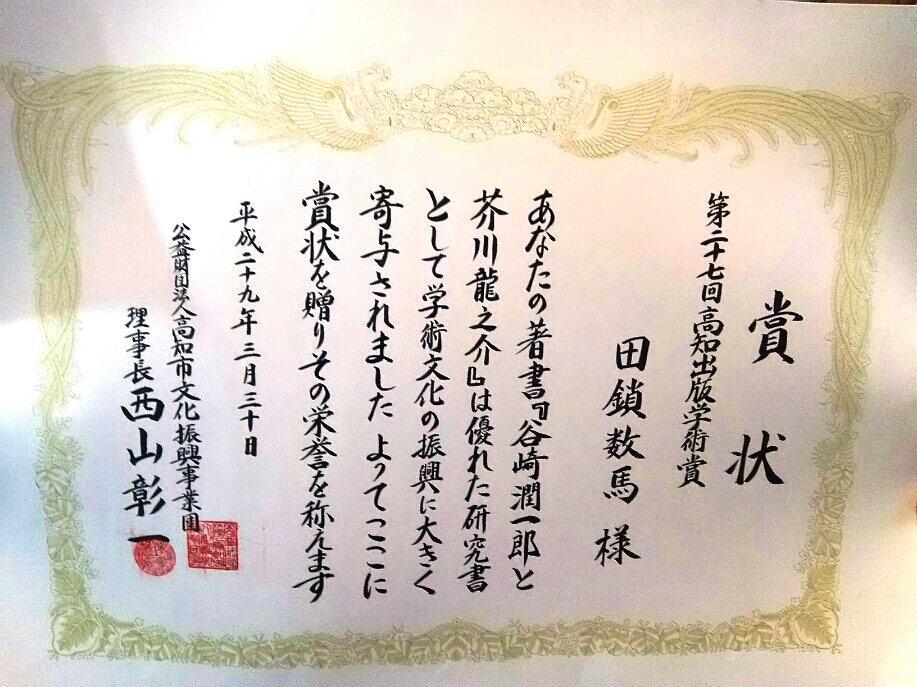 賞状
第二十七回高知出版学術賞
田鎖数馬様
あなたの著書『谷崎潤一郎と
芥川龍之介』は優れた研究書
として学術文化の振興に大きく
寄与されました よってここに
賞状を贈りその栄誉を称えます
平成二十九年三月三十日
公益財団法人高知市文化振興事業団
理事長西山彰一